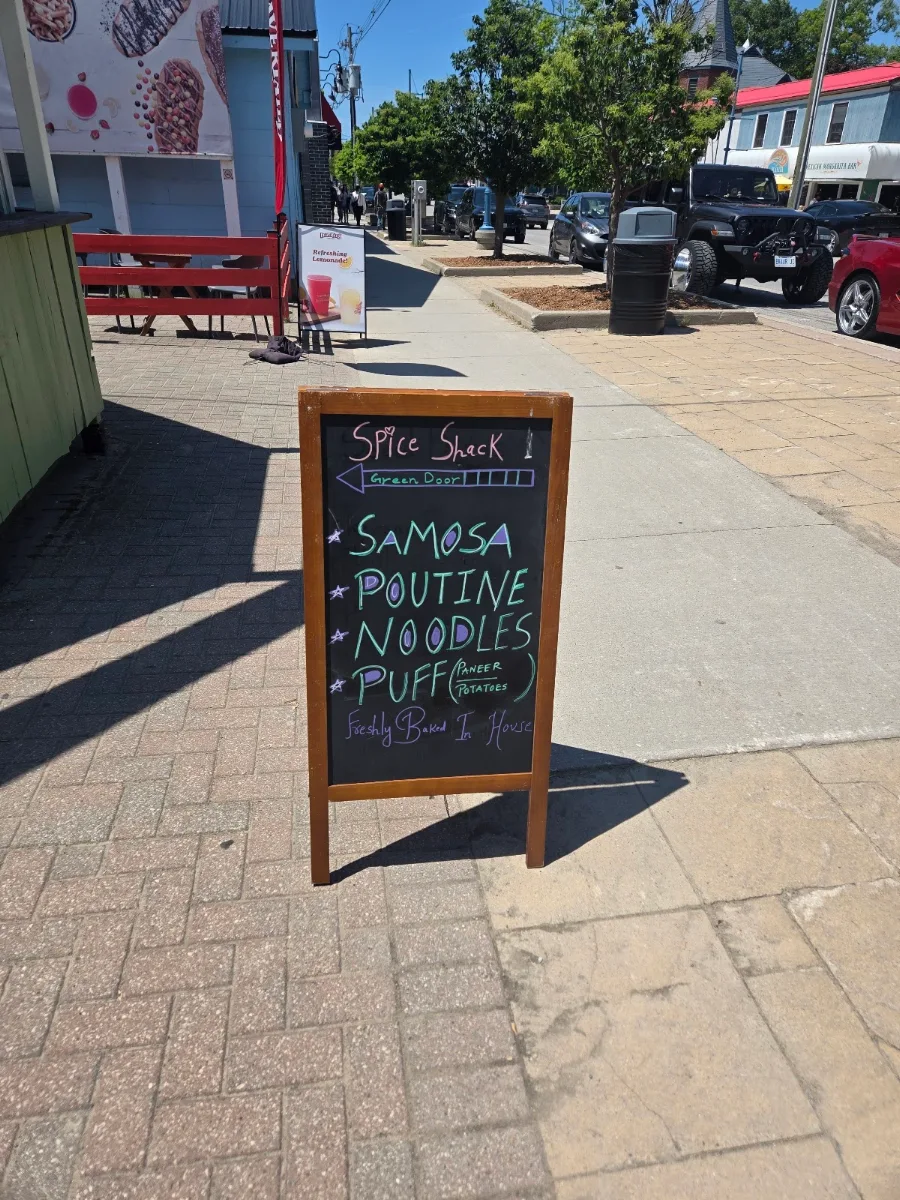 Refreshing
Lemonade!
MARGARITA BAR
Spice Shack
Green Door
SAMOSA
POUTINE
NOODLES
PUFF (PANEER
POTATOES)
Freshly Baked In House